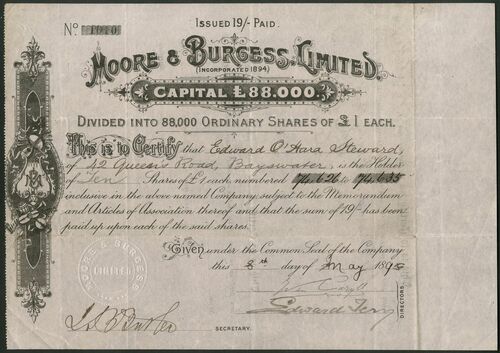 ISSUED 19/- PAID.
No. 1910
MOORE & BURGESS, LIMITED.
(INCORPORATED 1894)
CAPITAL £88.000.
DIVIDED INTO 88,000 ORDINARY SHARES OF £1 EACH.
This is to Certify that Edward O'Hara Steward,
of 42 Queen's Road, Bayswater, is the Holder
of Ten Shares of £1 each numbered 74.626 to 74.635
inclusive in the above named Company, subject to the Memorandum
and Articles of Association thereof and that the sum of 19/- has been
paid up upon each of the said shares.
Given under the Common Seal of the Company
this 8th day of May 189
MOORE & BURGESS
LIMITED
Edward Terry
DIRECTORS.
SECRETARY.